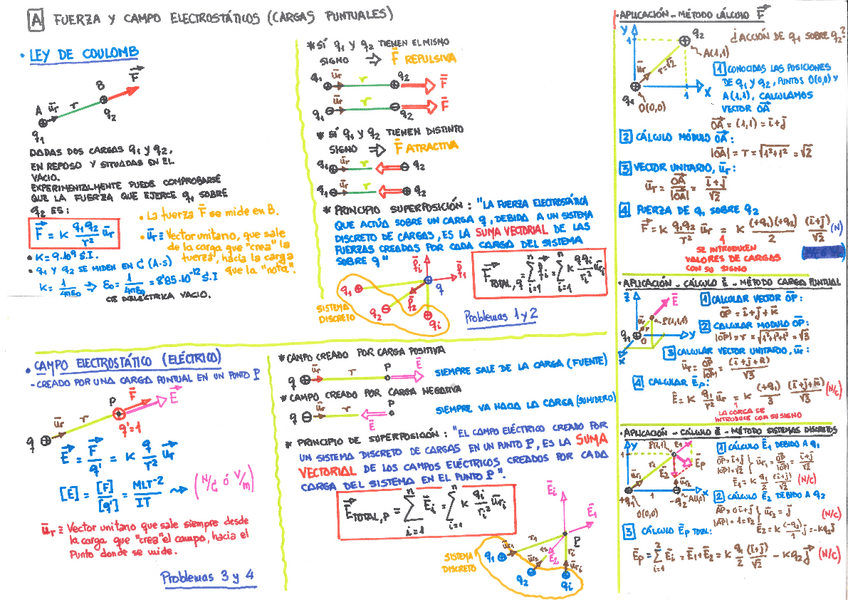 A FUERZA Y CAMPO ELECTROSTÁTICOS (CARGAS PUNTUALES)
• LEY DE COULOMB
A ūr r B F
q1 q2
DADAS DOS CARGAS q1 y q2,
EN REPOSO Y SITUADAS EN EL
VACIO.
EXPERIMENTALMENTE PUEDE COMPROBARSE
QUE LA FUERZA QUE EJERCE q1 SOBRE
q2 ES:
F = K q1 q2 / r² ūr
• La fuerza F se mide en B.
• ūr = Vector unitario, que sale
de la carga que "crea" la
fuerza, hacia la carga
que la "nota".
• K = 9·10⁹ S.I.
• q1 y q2 SE MIDEN EN C (A·s)
K = 1/4πε0 ⇒ ε0 = 1/4πK = 8'85·10⁻¹² S.I
CTE DIELÉCTRICA VACIO.
* SI q1 y q2 TIENEN EL MISMO
SIGNO ⇒ F REPULSIVA
q1 ūr r q2 F
F
* SI q1 y q2 TIENEN DISTINTO
SIGNO ⇒ F ATRACTIVA
q1 ūr r q2
ūr r
* PRINCIPIO SUPERPOSICIÓN: "LA FUERZA ELECTROSTÁTICA
QUE ACTÚA SOBRE UN CARGA q, DEBIDO A UN SISTEMA
DISCRETO DE CARGAS, ES LA SUMA VECTORIAL DE LAS
FUERZAS CREADAS POR CADA CARGA DEL SISTEMA
SOBRE q"
F TOTAL, q = Σ Fi = Σ K q qi / ri² ūri
q1 q2 qi q
SISTEMA
DISCRETO
Problemas 1 y 2
• APLICACIÓN - MÉTODO CÁLCULO F
¿ACCIÓN DE q1 SOBRE q2?
Y 1 q2 A(1,1)
ūr r=√2
q1 O(0,0) 1 X
1 CONOCIDAS LAS POSICIONES
DE q1 y q2, PUNTOS O(0,0) Y
A(1,1), CALCULAMOS
VECTOR OA
OA = (1,1) = i+j
2 CÁLCULO MÓDULO OA:
|OA| = r = √1²+1² = √2
3 VECTOR UNITARIO, ūr:
ūr = OA/|OA| = i+j/√2
4 FUERZA DE q1 SOBRE q2
F = K q1 q2 / r² ūr = K (+q1)(+q2)/2 (i+j)/√2 (N)
SE INTRODUCEN
VALORES DE CARGAS
CON SU SIGNO
• APLICACIÓN - CÁLCULO E - MÉTODO CARGA PUNTUAL
Z E P(1,1,1) Y X q1 O
1 CALCULAR VECTOR OP:
OP = i+j+k
2 CALCULAR MODULO OP:
|OP| = r = √1²+1²+1² = √3
3 CALCULAR VECTOR UNITARIO, ūr:
ūr = OP/|OP| = (i+j+k)/√3
4 CALCULAR EP:
E = K q/r² ūr = K (+q1)/3 (i+j+k)/√3 (N/C)
LA CARGA SE
INTRODUCE CON SU SIGNO
• CAMPO ELECTROSTÁTICO (ELÉCTRICO)
- CREADO POR UNA CARGA PUNTUAL EN UN PUNTO P
q ūr r P F E
q'=1
E = F/q' = K q/r² ūr
[E] = [F]/[q'] = MLT⁻²/IT → (N/C ó V/m)
ūr = Vector unitario que sale siempre desde
la carga que "crea" el campo, hacia el
Punto donde se mide.
Problemas 3 y 4
* CAMPO CREADO POR CARGA POSITIVA
q ūr r P E SIEMPRE SALE DE LA CARGA (FUENTE)
* CAMPO CREADO POR CARGA NEGATIVA
q ūr r E P SIEMPRE VA HACIA LA CARGA (SUMIDERO)
* PRINCIPIO DE SUPERPOSICIÓN: "EL CAMPO ELÉCTRICO CREADO POR
UN SISTEMA DISCRETO DE CARGAS EN UN PUNTO P, ES LA SUMA
VECTORIAL DE LOS CAMPOS ELÉCTRICOS CREADOS POR CADA
CARGA DEL SISTEMA EN EL PUNTO P".
E TOTAL, P = Σ Ei = Σ K qi/ri² ūri
SISTEMA
DISCRETO
q1 q2 qi P
• APLICACIÓN - CÁLCULO E - MÉTODO SISTEMAS DISCRETOS
Y P(1,1) E1 EP E2
+q1 O(0,0) 1 A(1,0) X
1 CÁLCULO E1 DEBIDO A q1
OP = i+j
|OP| = √2
ūr1 = OP/|OP| = i+j/√2
E1 = K q1/2 (i+j)/√2 (N/C)
2 CÁLCULO E2 DEBIDO A q2
AP = 0i+j
|AP| = 1 = r2
ūr2 = j (N/C)
E2 = K (-q2)/1 j = -Kq2 j
3 CÁLCULO EP TOTAL:
EP = Σ Ei = E1+E2 = K q1/2 (i+j)/√2 - Kq2 j (N/C)